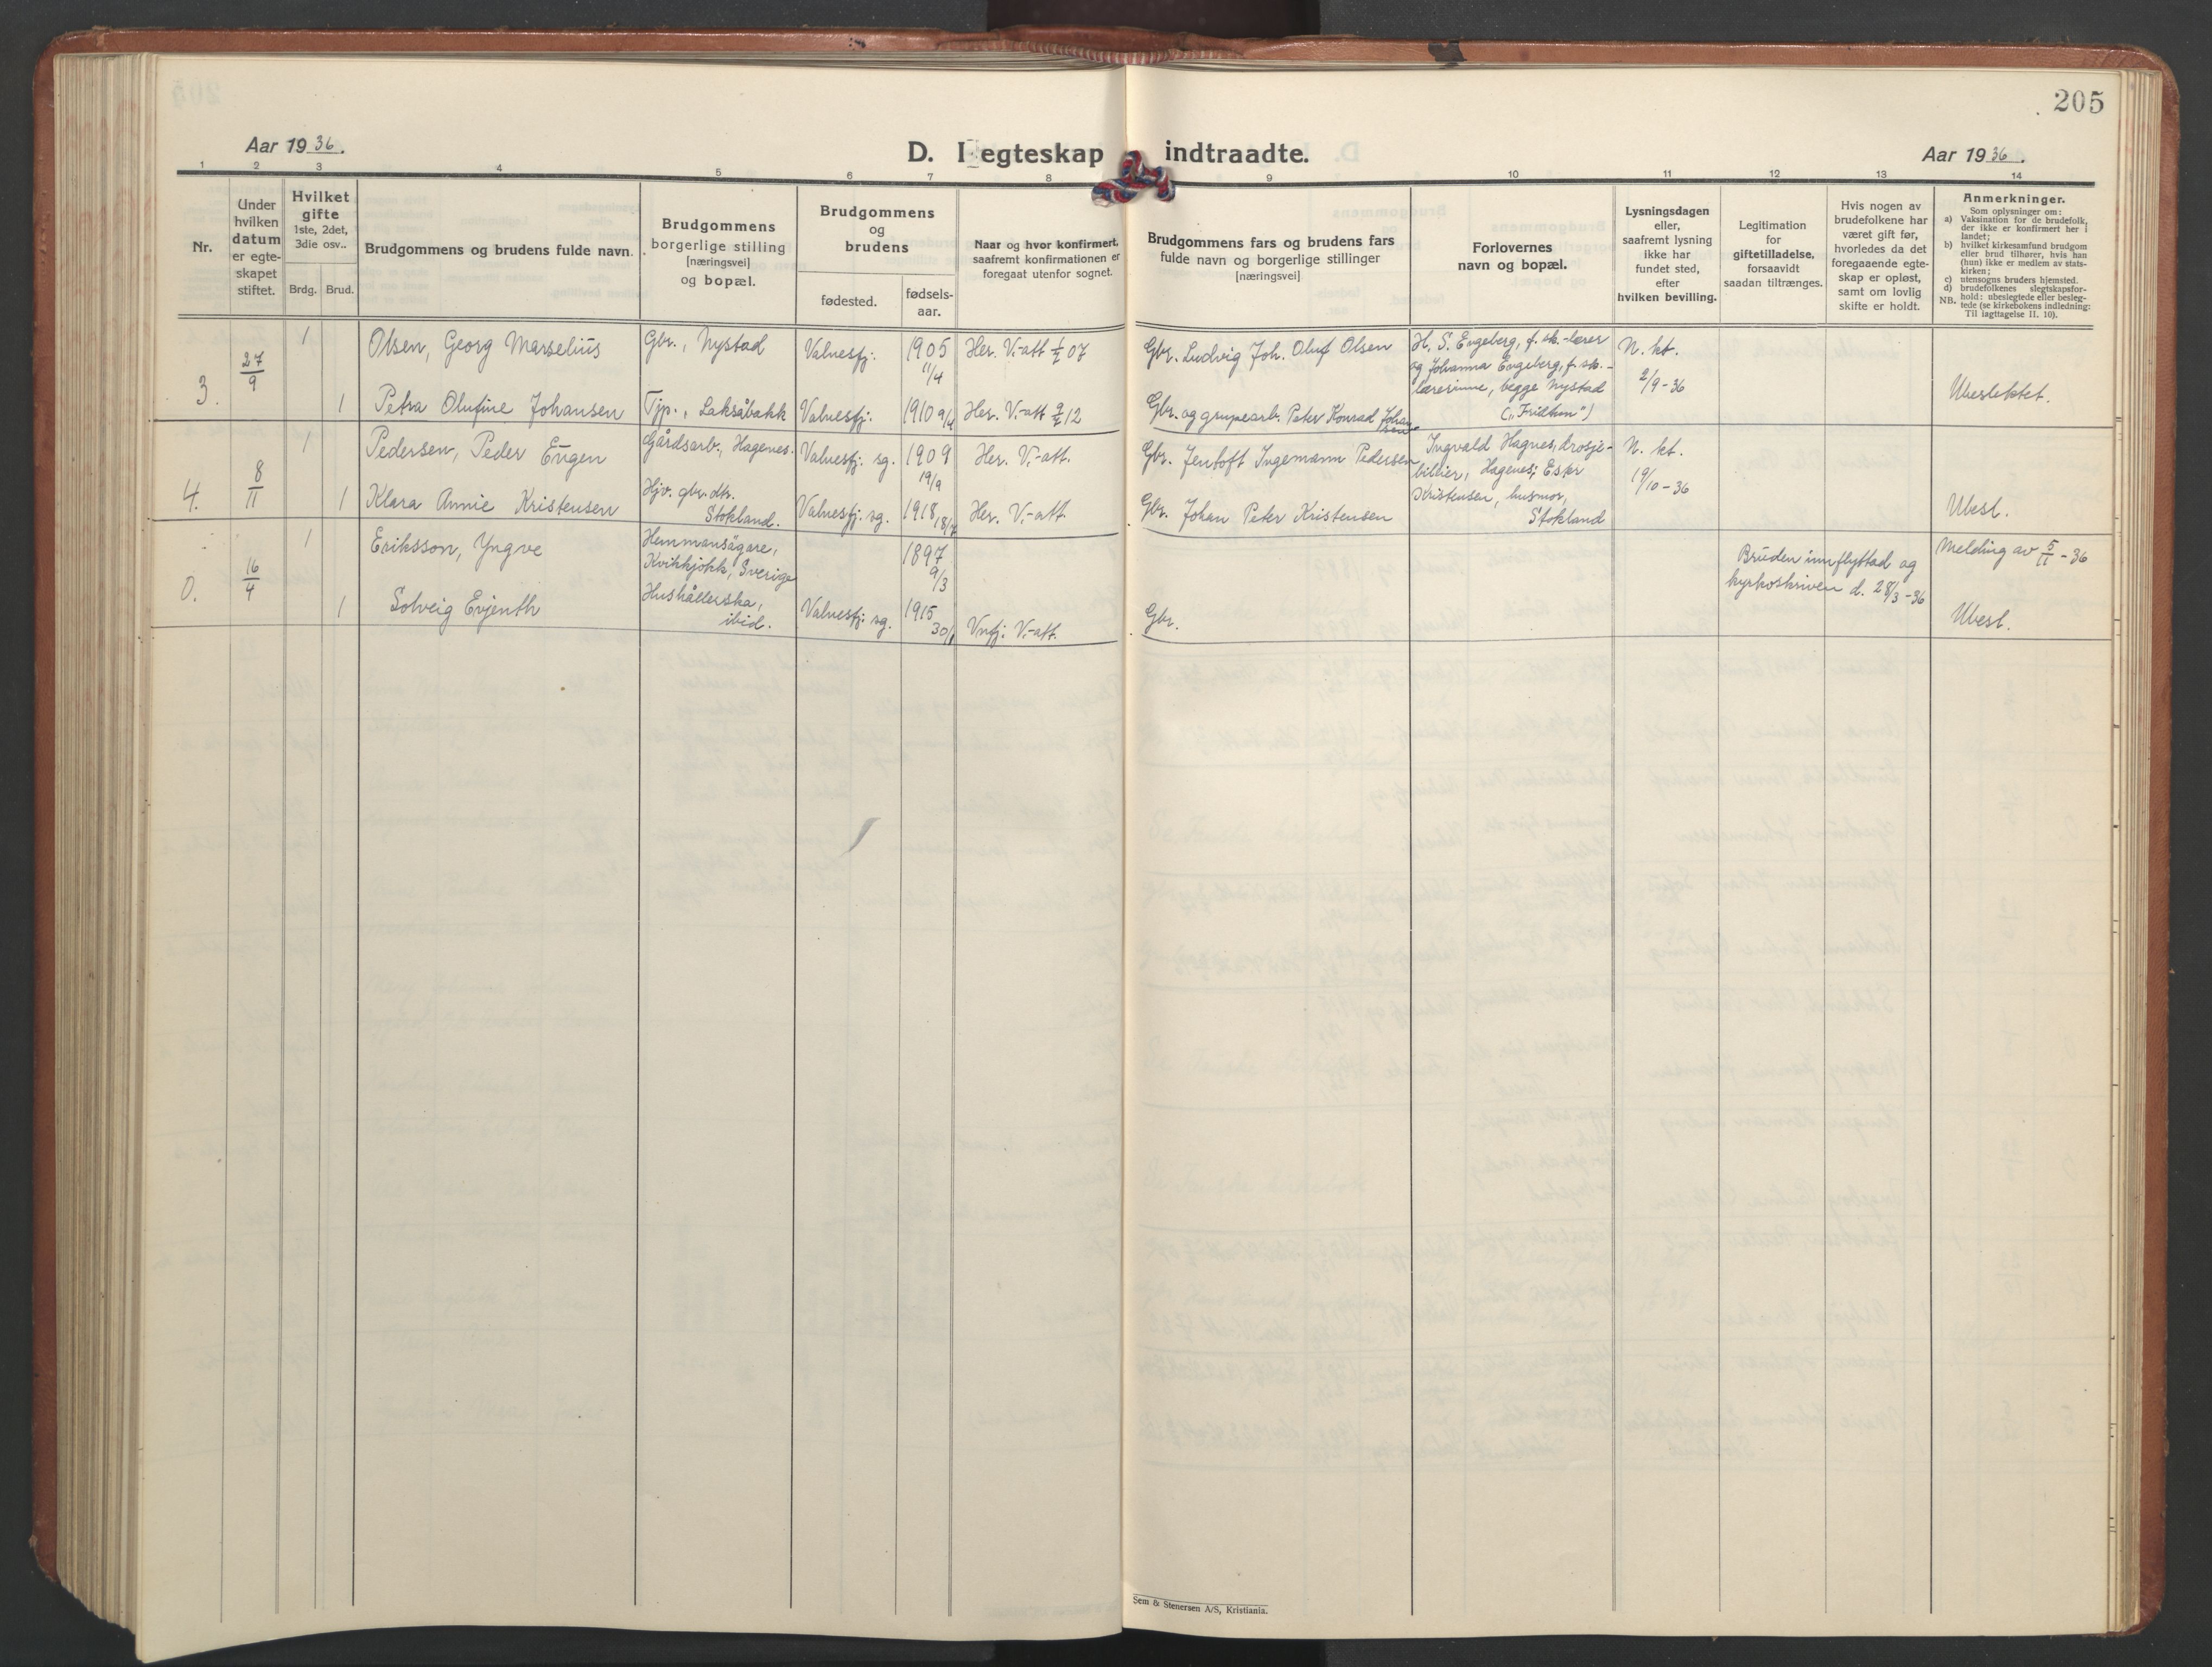 205
Aar 1936.
D. I egteskap indtraadte.
Aar 1936.
1 2 3 4 5 6 7 8 9 10 11 12 13 14
Nr.
Under
hvilken
datum
er egte-
skapet
stiftet.
Hvilket
gifte
1ste, 2det,
3die osv..
Brdg. Brud.
Brudgommens og brudens fulde navn.
Brudgommens
borgerlige stilling
[næringsvei]
og bopæl.
Brudgommens
og
brudens
fødested.
fødsels-
aar.
Naar og hvor konfirmert,
saafremt konfirmationen er
foregaat utenfor sognet.
Brudgommens fars og brudens fars
fulde navn og borgerlige stillinger
[næringsvei]
Forlovernes
navn og bopæl.
Lysningsdagen
eller,
saafremt lysning
ikke har
fundet sted,
efter
hvilken bevilling.
Legitimation
for
giftetilladelse,
forsaavidt
saadan tiltrænges.
Hvis nogen av
brudefolkene har
været gift før,
hvorledes da det
foregaaende egte-
skap er opløst,
samt om lovlig
skifte er holdt.
Anmerkninger.
Som oplysninger om:
a) Vaksination for de brudefolk,
der ikke er konfirmert her i
landet;
b) hvilket kirkesamfund brudgom
eller brud tilhører, hvis han
(hun) ikke er medlem av stats-
kirken;
c) utensogns bruders hjemsted.
d) brudefolkenes slegtskapsfor-
hold: ubeslegtede eller besleg-
NB. tede (se kirkebokens indledning:
Til iagttagelse II. 10).
3. 27/9
1 Olsen, Georg Marselius Gbr., Nystad Valnesfj. 1905 11/4 Her. V.-att 1/2 07 Gbr. Ludvig Joh. Oluf Olsen
1 Petra Olufine Johansen Tjp., Laksåbakk Valnesfj. 1910 9/4 Her. V.-att 9/2 12 Gbr. og grupearb. Peter Konrad Johansen
H. S. Engeberg, f. sk.-lærer
og Johanna Engeberg, f. sk.-
lærerinne, begge Nystad
("Fridhem")
N. kt.
2/9-36
Ubeslektet.
4. 8/11
1 Pedersen, Peder Eugen Gårdsarb., Hagenes. Valnesfj. sg. 1909 19/9 Her. V.-att. Gbr. Jentoft Ingemann Pedersen
1 Klara Annie Kristensen Hjv. gbr. dtr.
Stokland. Valnesfj. sg. 1918 18/7 Her. V.-att. Gbr. Johan Peter Kristensen
Ingvald Hagnes, drosje-
billier, Hagenes; Ester
Kristensen, husmor,
Stokland
N. kt.
19/10-36
Ubesl.
0. 16/4
1 Eriksson, Yngve Hemmansägare,
Kvikkjokk, Sverige 1897 9/3
1 Solveig Evjenth Hushållerska,
ibid. Valnesfj. sg. 1915 30/1 Vnfj. V.-att. Gbr.
Bruden innflyttad og
kyrkoskriven d. 28/3-36
Melding av 5/11-36
Ubesl.
Sem & Stenersen A/S, Kristiania.